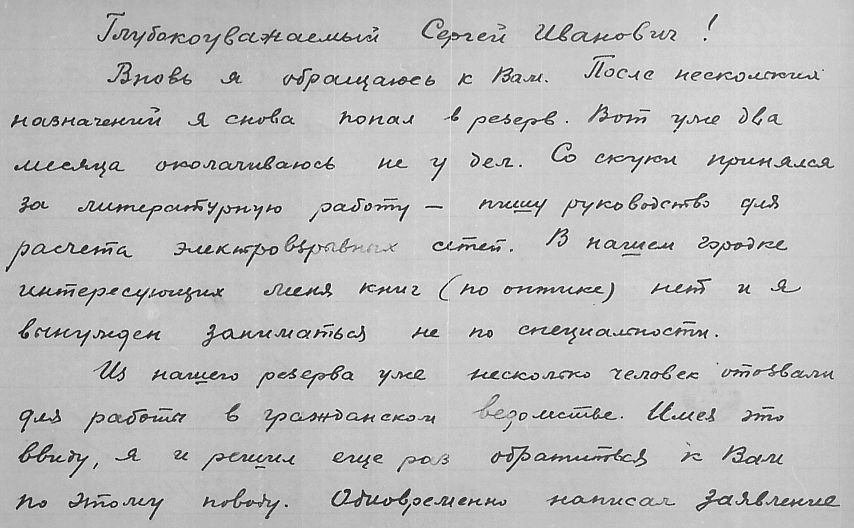 Глубокоуважаемый Сергей Иванович!
Вновь я обращаюсь к Вам. После нескольких
назначений я снова попал в резерв. Вот уже два
месяца околачиваюсь не у дел. Со скуки принялся
за литературную работу — пишу руководство для
расчета электровзрывных сетей. В нашем городке
интересующих меня книг (по оптике) нет и я
вынужден заниматься не по специальности.
Из нашего резерва уже несколько человек отозвали
для работы в гражданском ведомстве. Имея это
ввиду, я и решил еще раз обратиться к Вам
по этому поводу. Одновременно написал заявление